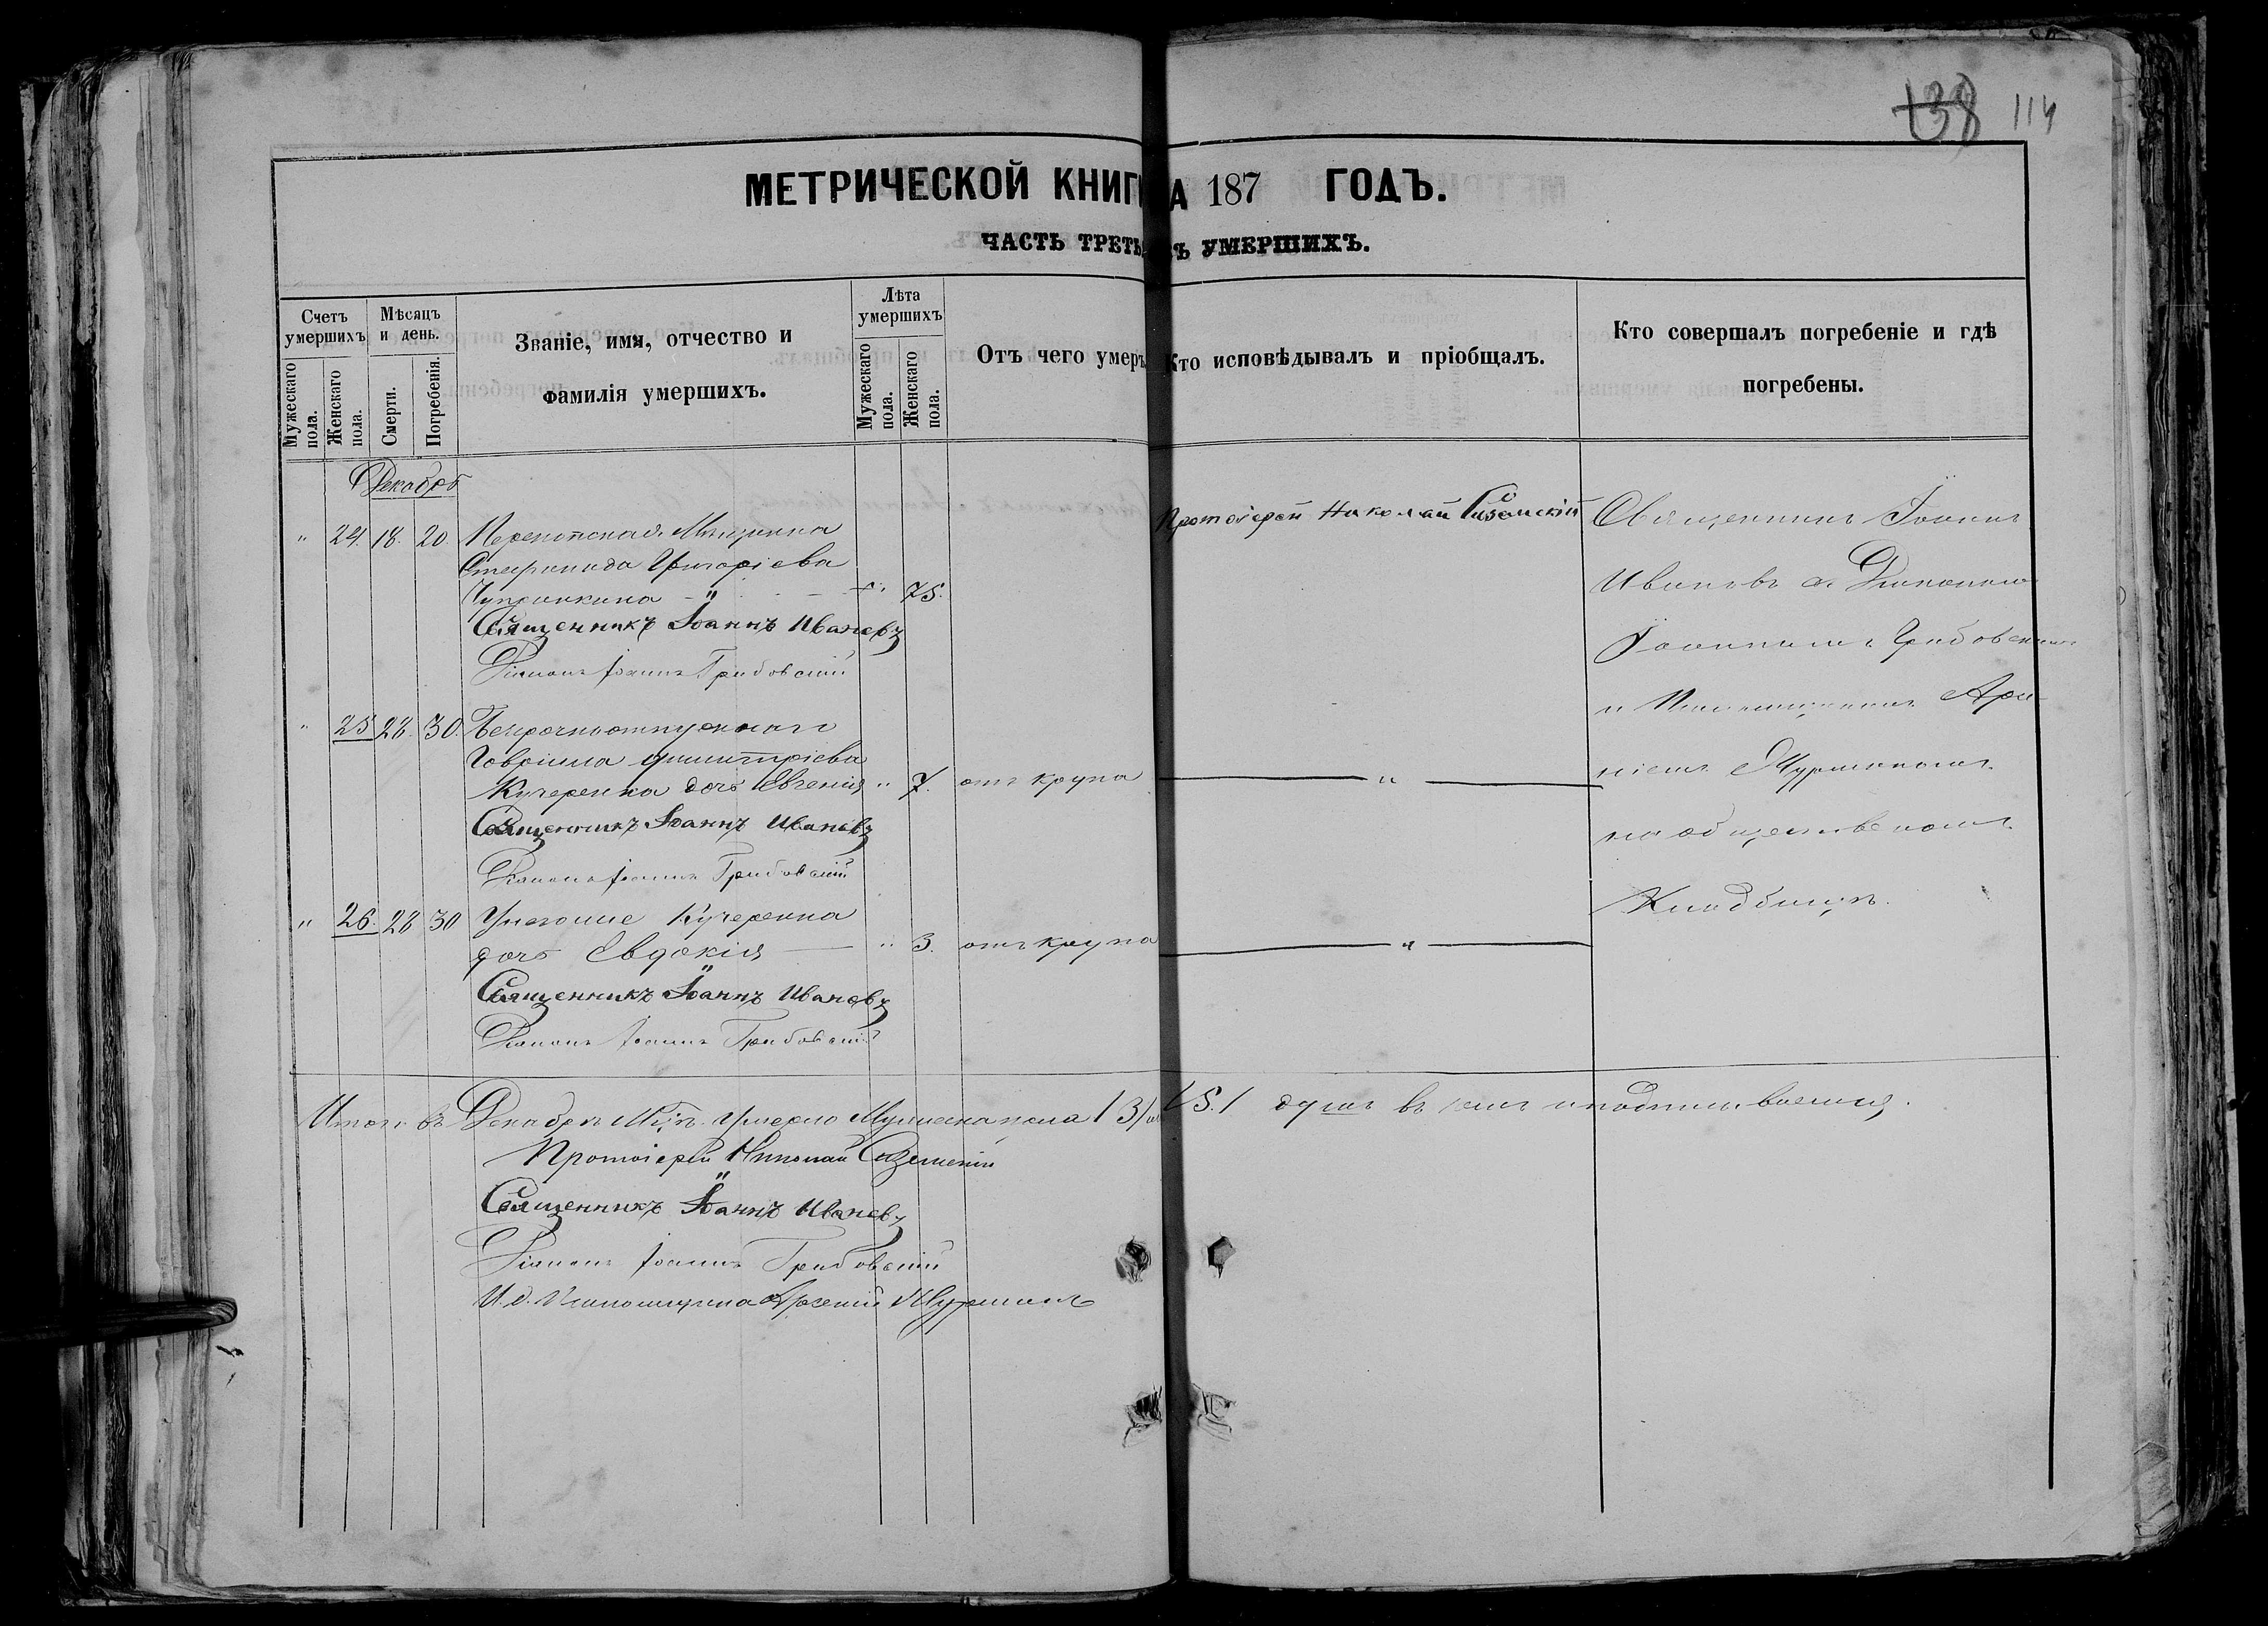 138 114
МЕТРИЧЕСКОЙ КНИГ А 187 ГОДЪ.
ЧАСТЬ ТРЕТЬ ХЪ УМЕРШИХЪ.
Счетъ умершихъ
Мужескаго пола.
Женскаго пола.
Мѣсяцъ и день.
Смерти.
Погребенія.
Званіе, имя, отчество и
фамилія умершихъ.
Лѣта умершихъ
Мужескаго пола.
Женскаго пола.
Отъ чего умеръ
Кто исповѣдывалъ и пріобщалъ.
Кто совершалъ погребеніе и гдѣ
погребены.
Декабрь
" 24. 18. 20. Перекопская Мѣщанка
Григоріева
" 75.
Священникъ Іоаннъ Ивановъ
Діаконъ Іоаннъ Грибовскій
Протоіерей Николай
" 25 28. 30.
Гавріила Димитріева
Кучеренка дочь Евгенія " 7. отъ крупа "
Священникъ Іоаннъ Ивановъ
Діаконъ Іоаннъ Грибовскій
" 26. 28 30 Кучеренка
дочь Евдокія " 3. отъ крупа "
Священникъ Іоаннъ Ивановъ
Діаконъ Іоаннъ Грибовскій
Священникъ Іоаннъ
Ивановъ съ Діакономъ
Іоанномъ Грибовскимъ
и Псаломщикомъ Арсе-
ніемъ
на общественномъ
Кладбищѣ.
Итого въ Декабрѣ умерло Мужеска пола / 3/ /5./ душъ въ чемъ и подписываемся.
Протоіерей Николай
Священникъ Іоаннъ Ивановъ
Діаконъ Іоаннъ Грибовскій
И. д. Псаломщика Арсеній